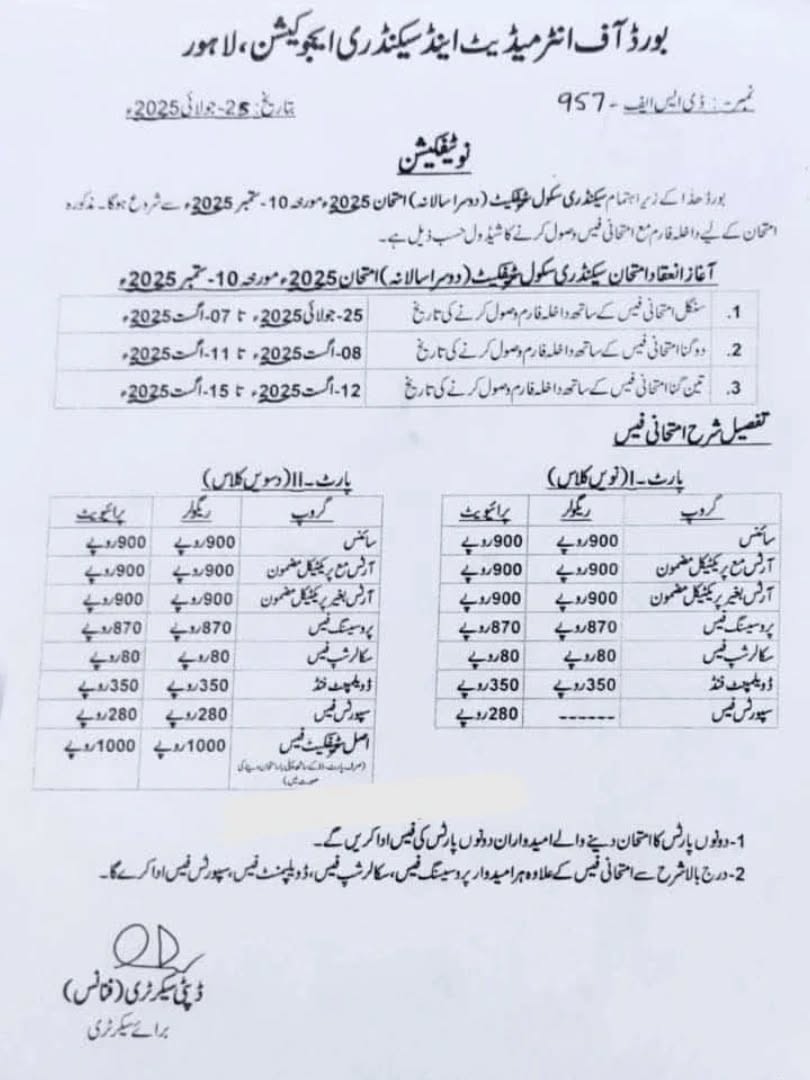 بورڈ آف انٹرمیڈیٹ اینڈ سیکنڈری ایجوکیشن، لاہور
نمبر: ڈی ایس ایف - 957
تاریخ: 25-جولائی 2025ء
نوٹیفکیشن
بورڈ ھذا کے زیر اہتمام سیکنڈری سکول سرٹیفکیٹ (دوسرا سالانہ) امتحان 2025ء مورخہ 10-ستمبر 2025ء سے شروع ہوگا۔ مذکورہ
امتحان کے لیے داخلہ فارم مع امتحانی فیس وصول کرنے کا شیڈول حسب ذیل ہے۔
آغاز انعقاد امتحان سیکنڈری سکول سرٹیفکیٹ (دوسرا سالانہ) امتحان 2025ء مورخہ 10-ستمبر 2025ء
1. سنگل امتحانی فیس کے ساتھ داخلہ فارم وصول کرنے کی تاریخ 25-جولائی 2025ء تا 07-اگست 2025ء
2. دو گنا امتحانی فیس کے ساتھ داخلہ فارم وصول کرنے کی تاریخ 08-اگست 2025ء تا 11-اگست 2025ء
3. تین گنا امتحانی فیس کے ساتھ داخلہ فارم وصول کرنے کی تاریخ 12-اگست 2025ء تا 15-اگست 2025ء
تفصیل شرح امتحانی فیس
پارٹ۔I (نویں کلاس)
گروپ ریگولر پرائیویٹ
سائنس 900روپے 900روپے
آرٹس مع پریکٹیکل مضمون 900روپے 900روپے
آرٹس بغیر پریکٹیکل مضمون 900روپے 900روپے
پروسیسنگ فیس 870روپے 870روپے
سکالرشپ فیس 80روپے 80روپے
ڈویلپمنٹ فنڈ 350روپے 350روپے
سپورٹس فیس ------ 280روپے
پارٹ۔II (دسویں کلاس)
گروپ ریگولر پرائیویٹ
سائنس 900روپے 900روپے
آرٹس مع پریکٹیکل مضمون 900روپے 900روپے
آرٹس بغیر پریکٹیکل مضمون 900روپے 900روپے
پروسیسنگ فیس 870روپے 870روپے
سکالرشپ فیس 80روپے 80روپے
ڈویلپمنٹ فنڈ 350روپے 350روپے
سپورٹس فیس 280روپے 280روپے
اصل سرٹیفکیٹ فیس 1000روپے 1000روپے
صورت میں)
1-دونوں پارٹس کا امتحان دینے والے امیدواران دونوں پارٹس کی فیس ادا کریں گے۔
2-درج بالا شرح سے امتحانی فیس کے علاوہ ہر امیدوار پروسیسنگ فیس، سکالرشپ فیس، ڈویلپمنٹ فیس، سپورٹس فیس ادا کرے گا۔
ڈپٹی سیکرٹری (فنانس)
برائے سیکرٹری